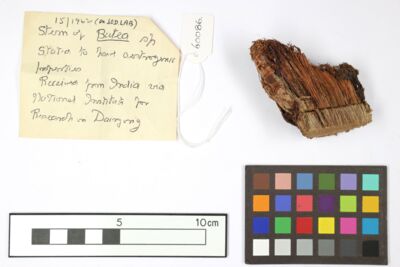 15/1962 (
Stem of Butea sp
Stated to have oestrogenic
properties
Received from India via
National Institute for
Research in Dairying
60086
5
10cm